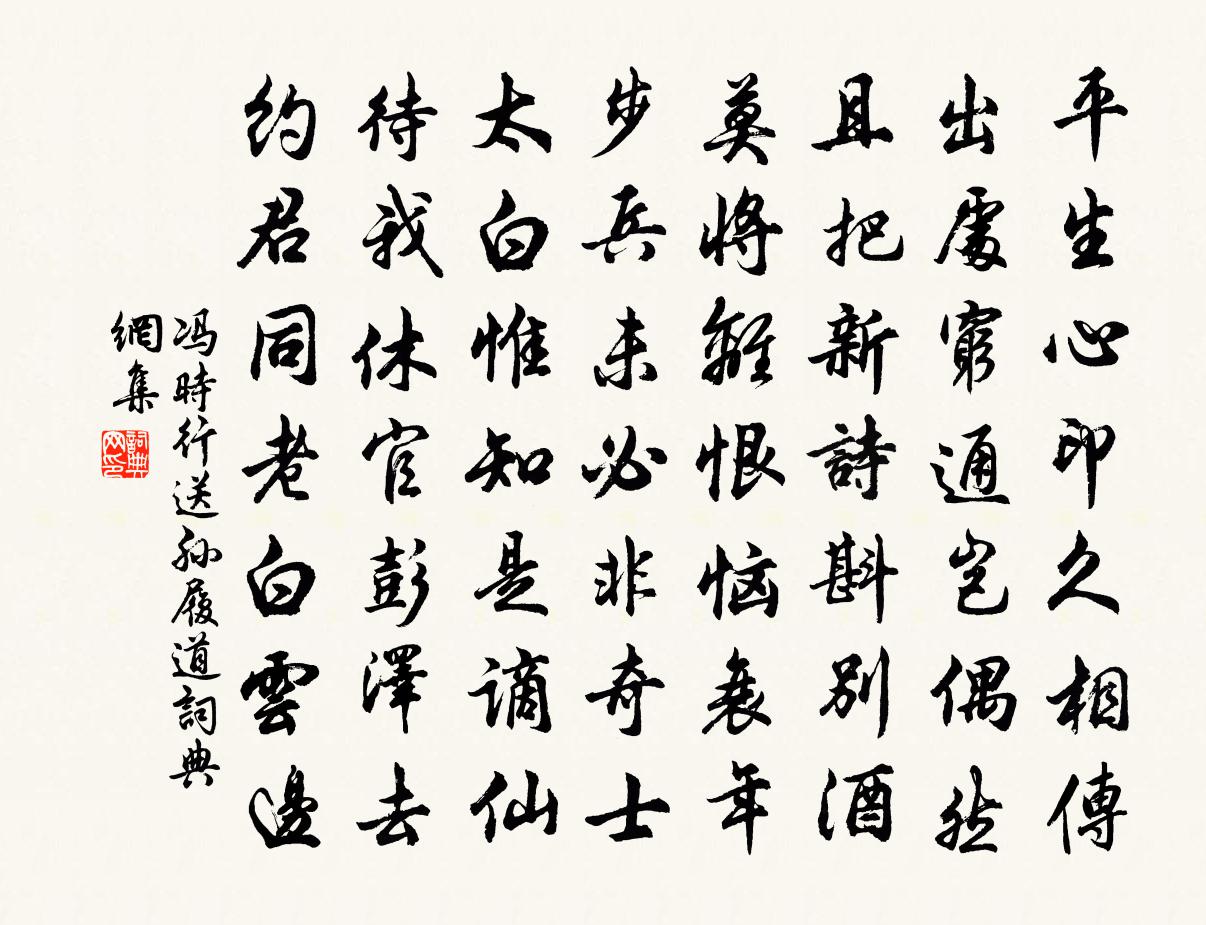 平生心印久相傳
出處窮通豈偶然
且把新詩斟別酒
莫將離恨惱衰年
步兵未必非奇士
太白惟知是謫仙
待我休官彭澤去
約君同老白雲邊
冯時行送孙履道詞典
網集
詞典网印